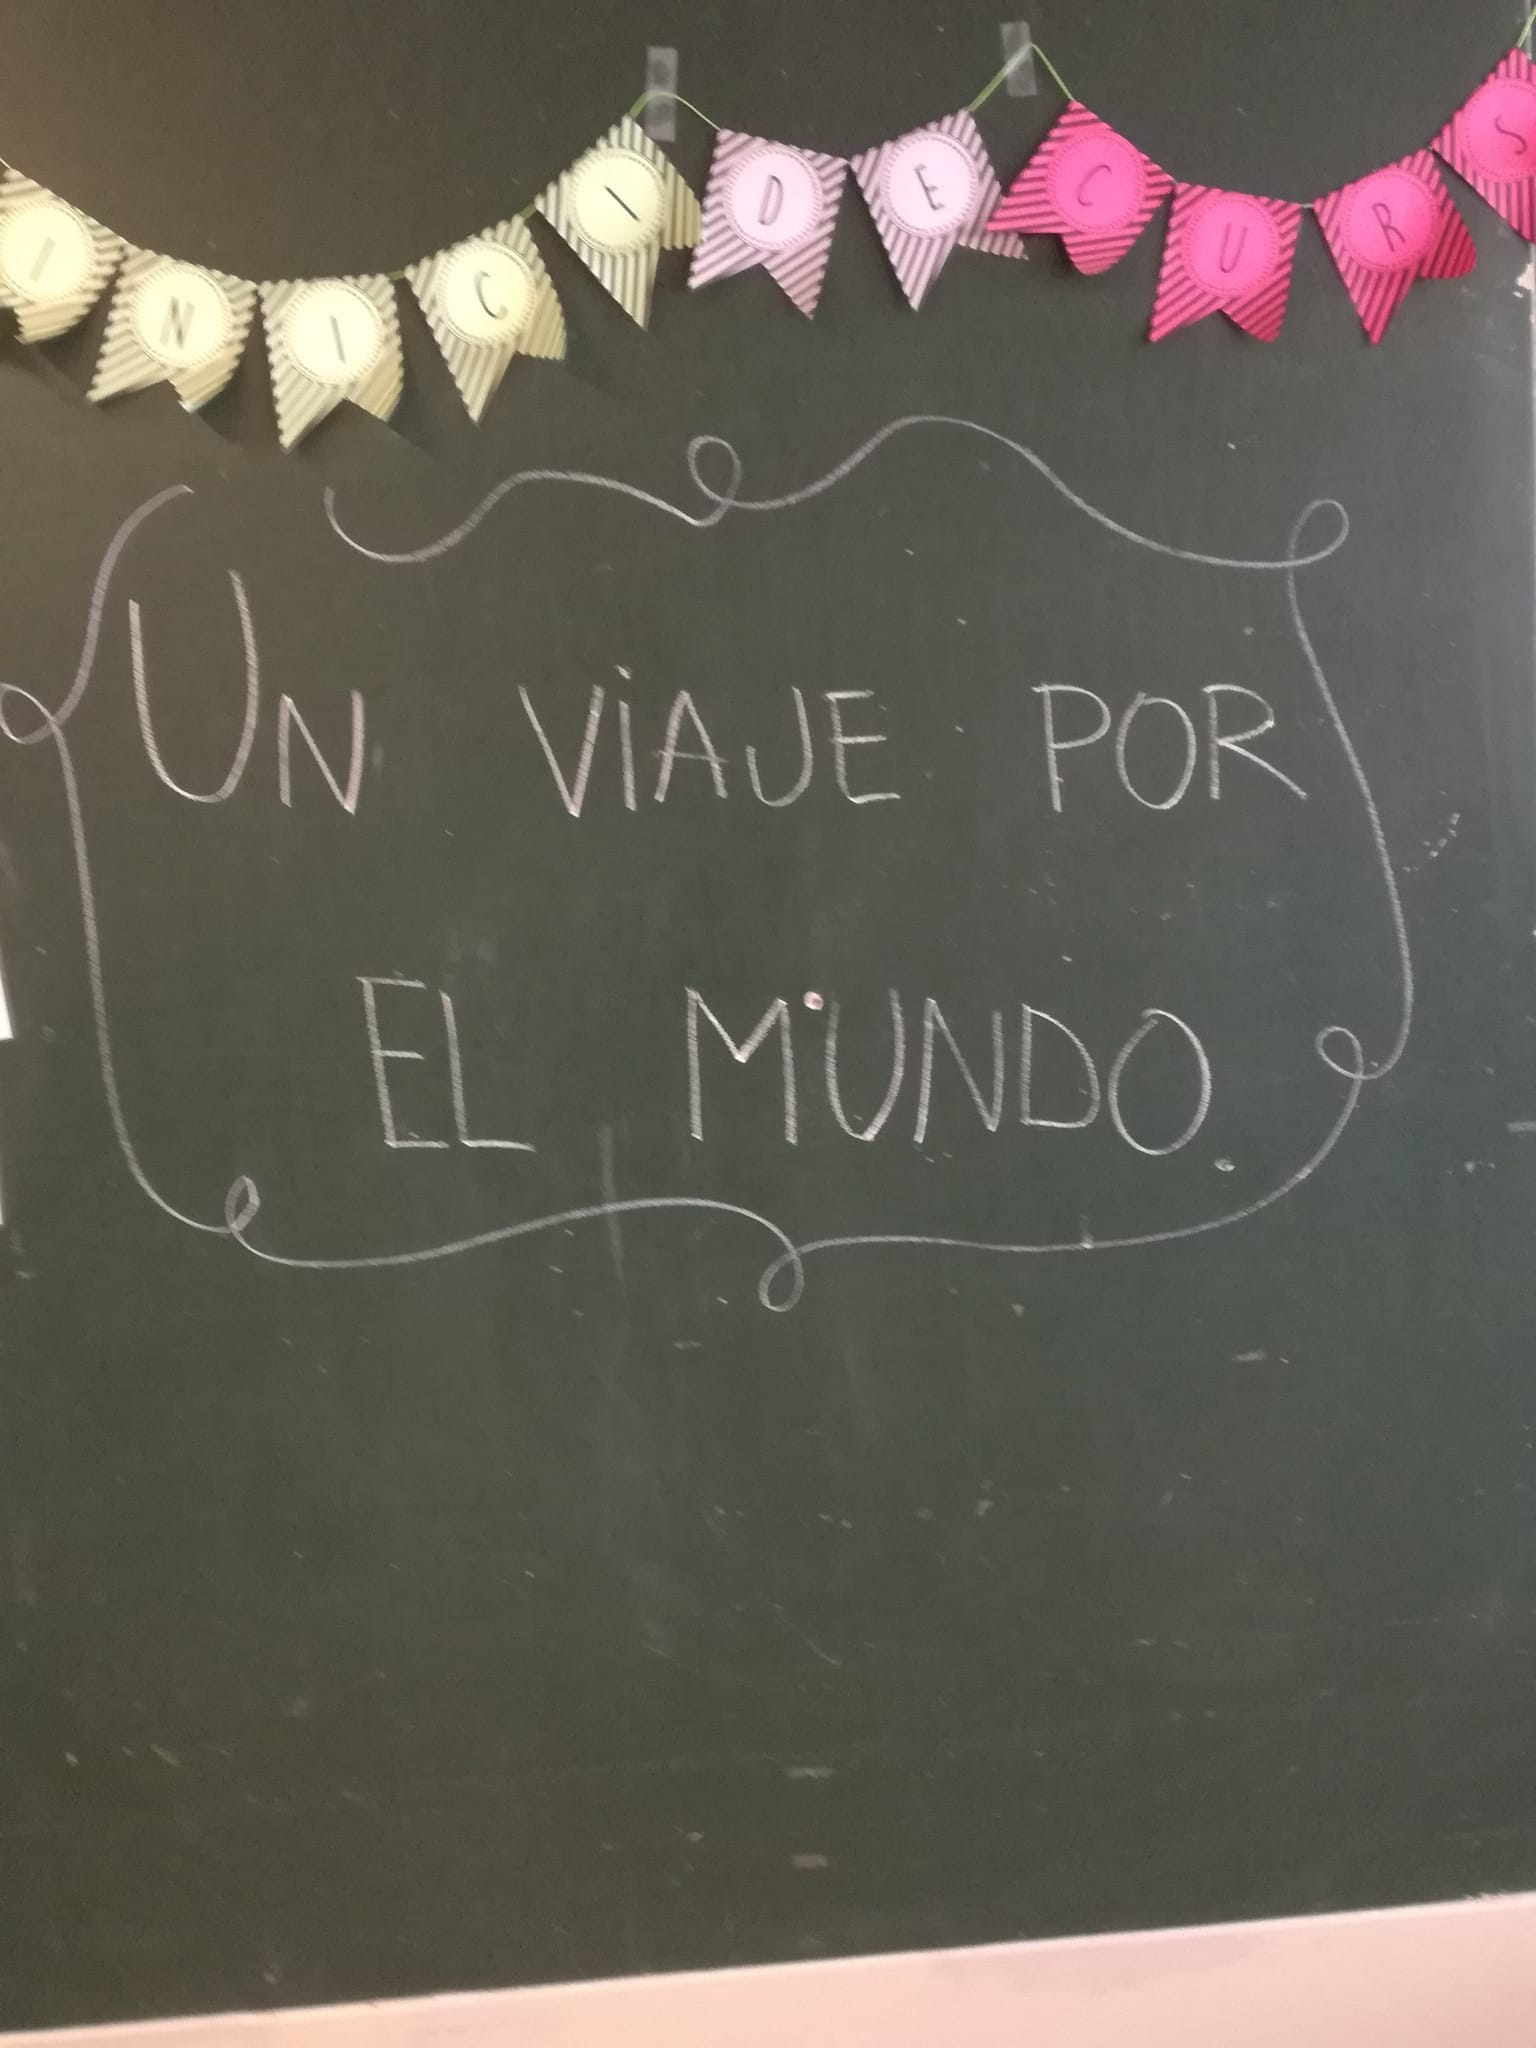 INICI DE CURS
UN VIAJE POR
EL MUNDO.